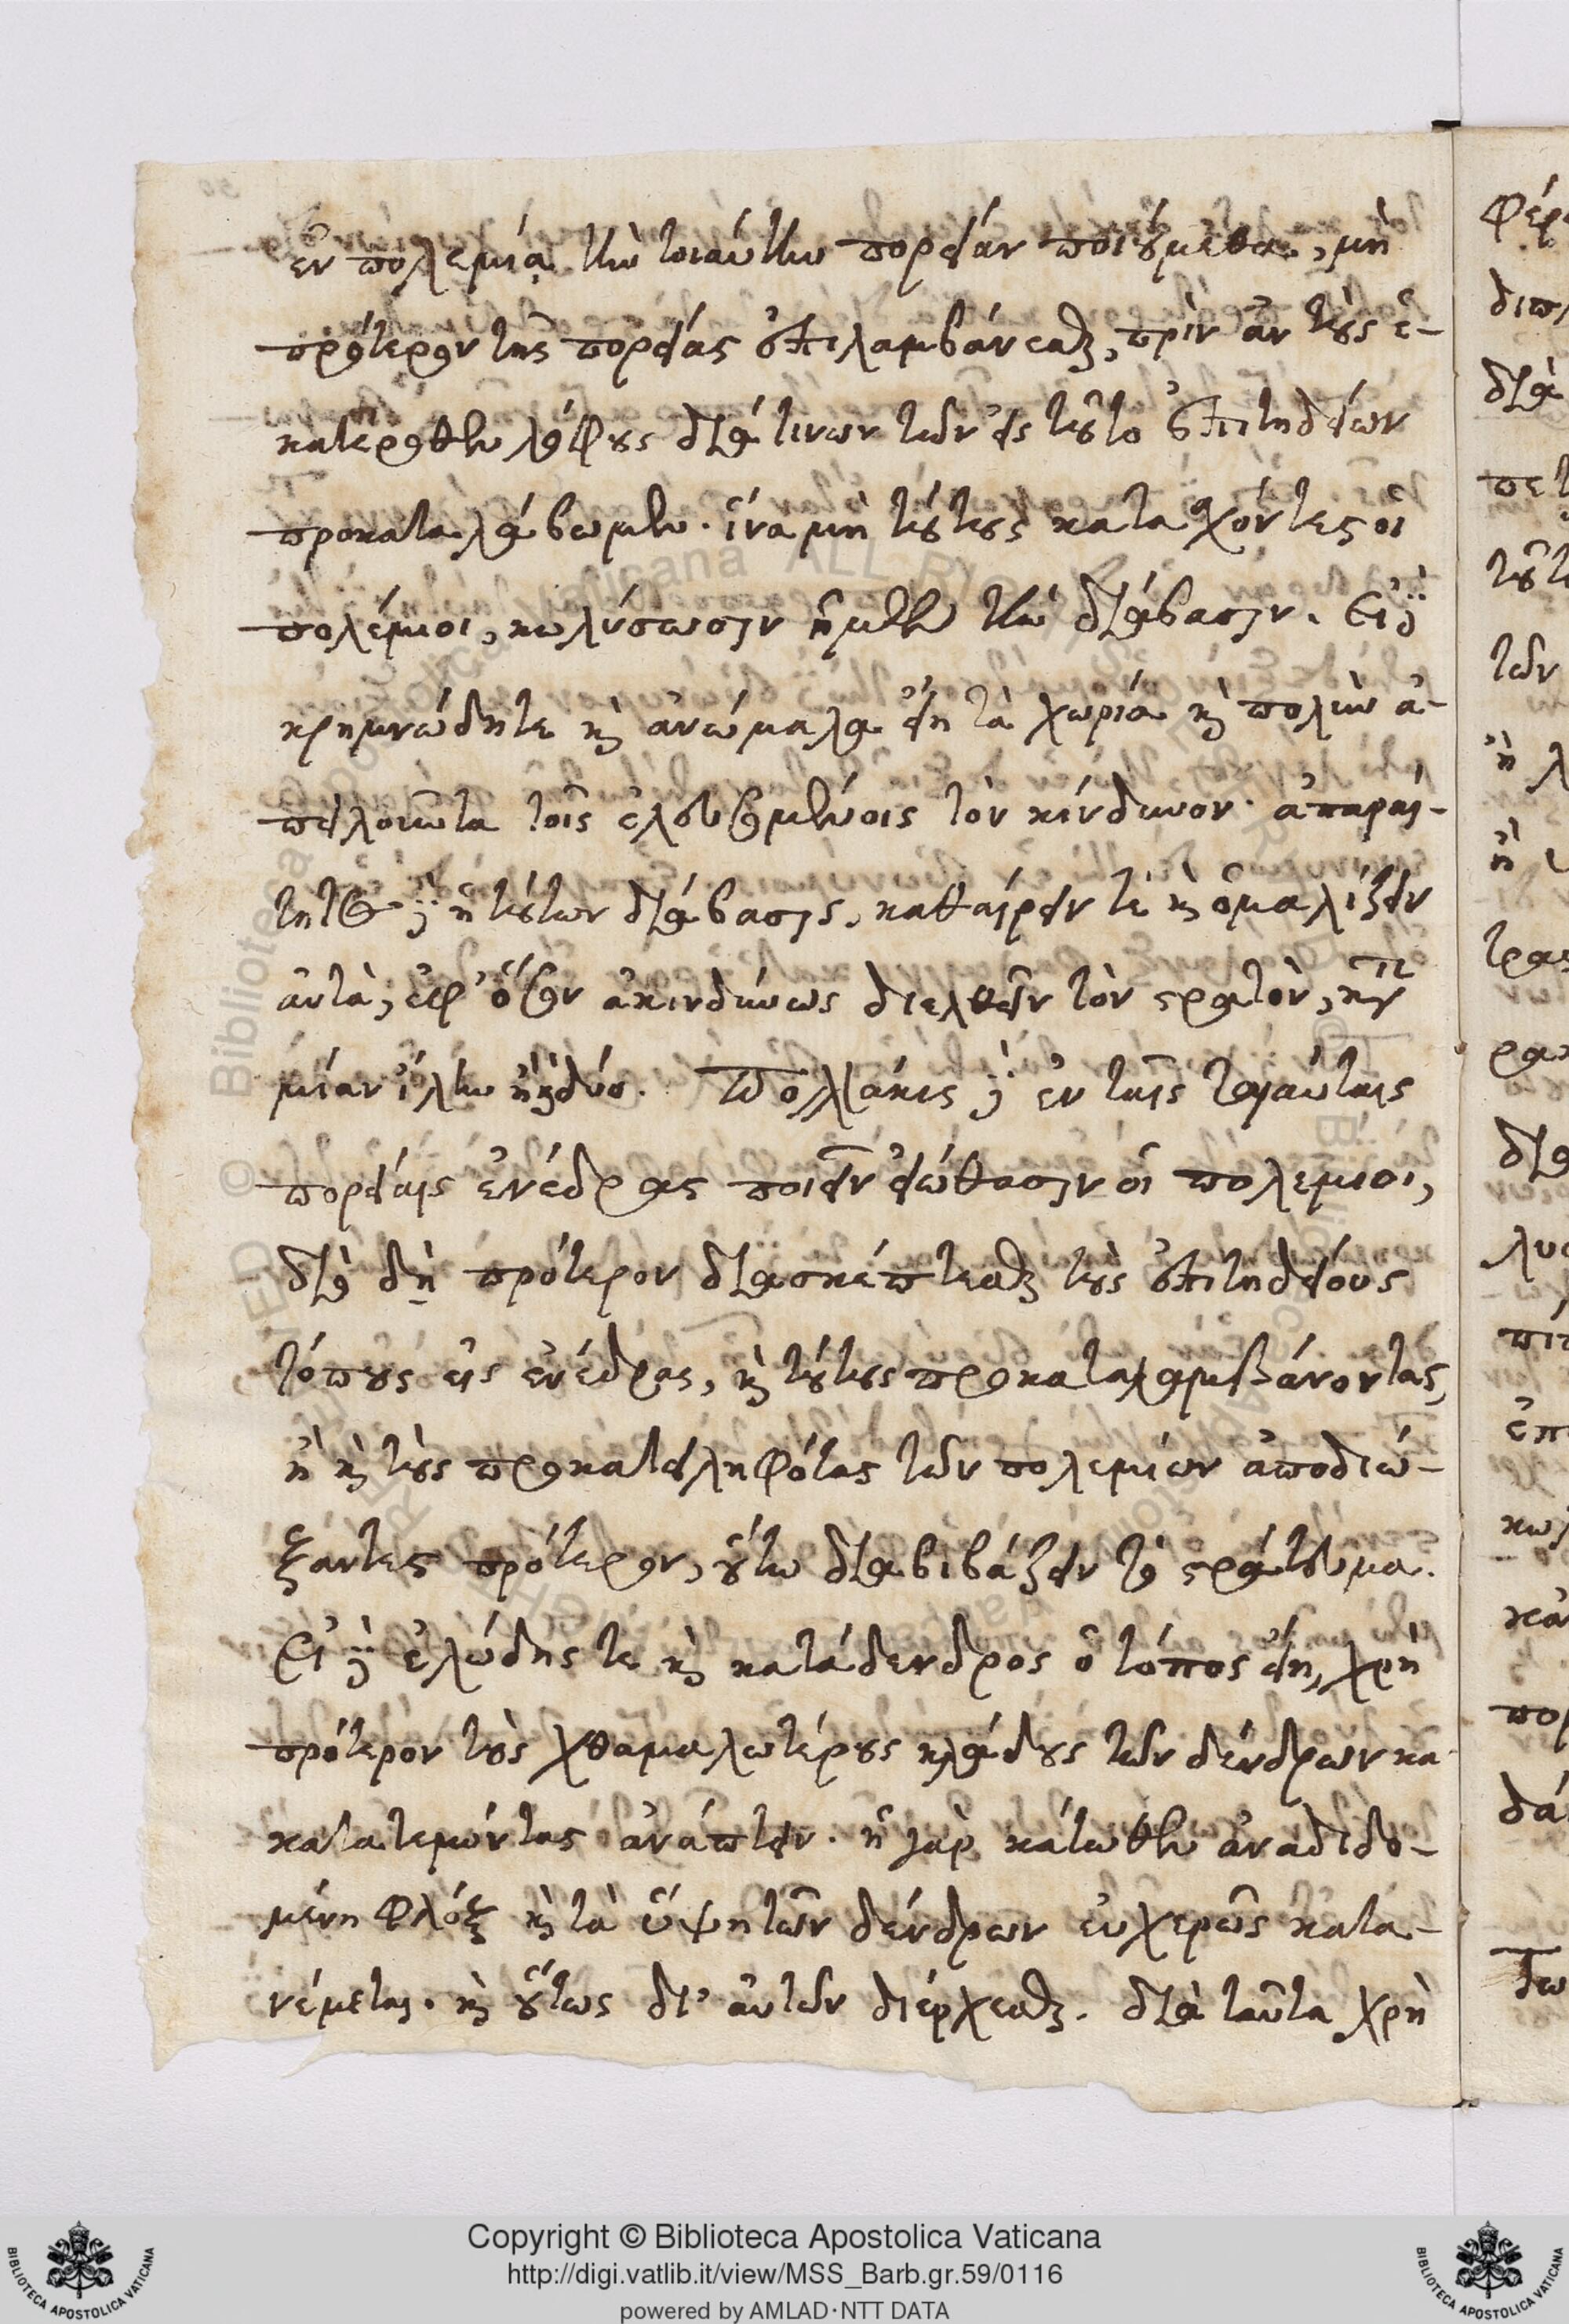 ἐν πολεμίᾳ τὴν τοιαύτην πορείαν ποιούμεθα, μὴ
πρότερον τῆς πορείας ἐπιλαμβάνεσθαι, πρὶν ἂν τοὺς ἑ-
κατέρωθεν λόφους διά τινων τῶν εἰς τοῦτο ἐπιτηδείων
προκαταλάβωμεν. ἵνα μὴ τούτους κατασχόντες οἱ
πολέμιοι, κωλύσωσιν ἡμῖν τὴν διάβασιν. Εἰ δὲ
κρημνώδη τε καὶ ἀνώμαλα εἴη τὰ χωρία καὶ πολὺν ἀ-
πειλοῦντα τοῖς ἐλευσομένοις τὸν κίνδυνον. ἀπαραί-
τητος δὲ ἡ τούτων διάβασις, καθαίρειν τε καὶ ὁμαλίζειν
αὐτὰ, ἐφ' ὅσον ἀκινδύνως διελθεῖν τὸν στρατὸν, κατὰ
μίαν ἴλην ἢ καὶ δύο. Πολλάκις δὲ ἐν ταῖς τοιαύταις
πορείαις ἐνέδρας ποιεῖν εἰώθασιν οἱ πολέμιοι,
διὸ δὴ πρότερον διασκέπτεσθαι τοὺς ἐπιτηδείους
τόπους εἰς ἐνέδρας, καὶ τούτους προκαταλαμβάνοντας,
ἢ καὶ τοὺς προκατειληφότας τῶν πολεμίων ἀποδιώ-
ξαντες πρότερον, οὕτω διαβιβάζειν τὸ στράτευμα.
Εἰ δὲ ἑλώδης τε καὶ κατάδενδρος ὁ τόπος εἴη, χρὴ
πρότερον τοὺς χθαμαλωτέρους κλάδους τῶν δένδρων κα
κατατεμόντας ἀνάπτειν. ἡ γὰρ κάτωθεν ἀναδιδο-
μένη φλὸξ καὶ τὰ ὕψη τῶν δένδρων εὐχερῶς κατα-
νέμεται. καὶ οὕτως δι' αὐτῶν διέρχεσθαι. διὰ ταῦτα χρὴ
Copyright © Biblioteca Apostolica Vaticana
http://digi.vatlib.it/view/MSS_Barb.gr.59/0116
powered by AMLAD·NTT DATA
BIBLIOTECA APOSTOLICA VATICANA
BIBLIOTECA APOSTOLICA VATICANA